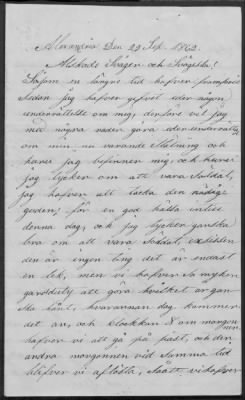 Alexandria Den 23 Sep. 1862.
Älskade Svåger och Svägerska!
Såsom en längre tid hafver framflutit
Sedan jag hafver gifvit eder någon
underrättelse om mig, derföre vil jag
med några rader göra eder underrättad
om min nu varande ställning och
huru jag befinner mig, och huru
jag tycker om att vara Soldat,
jag hafver att tacka den nådige
guden! för en god hälsa intill
denna dag, och jag tycker ganska
bra om att vara Soldat,
den är ingen ting det är endast
en lek, men vi hafver så mycken
att göra hvilket är gan-
ska hårdt, hvarannan dag kommer
det an, och clockkan 8 om morgonen
hafver vi att gå på påst, och den
andra morgonnen vid samma tid
blifver vi aflösta, Såatt vi hafver